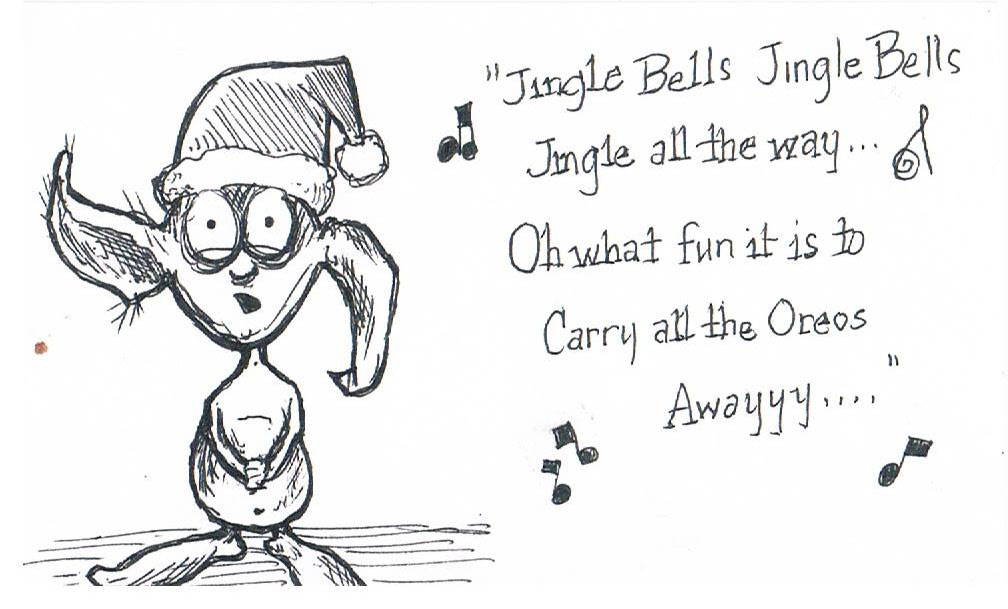 "Jingle Bells Jingle Bells
Jingle all the way...
Oh what fun it is to
Carry all the Oreos
Awayyy...."